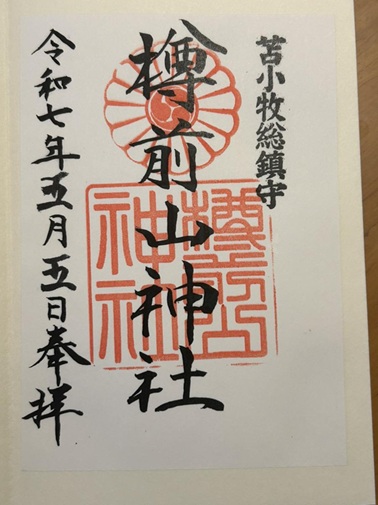 苫小牧総鎮守
樽前山神社
樽前山神社
令和七年五月五日奉拝